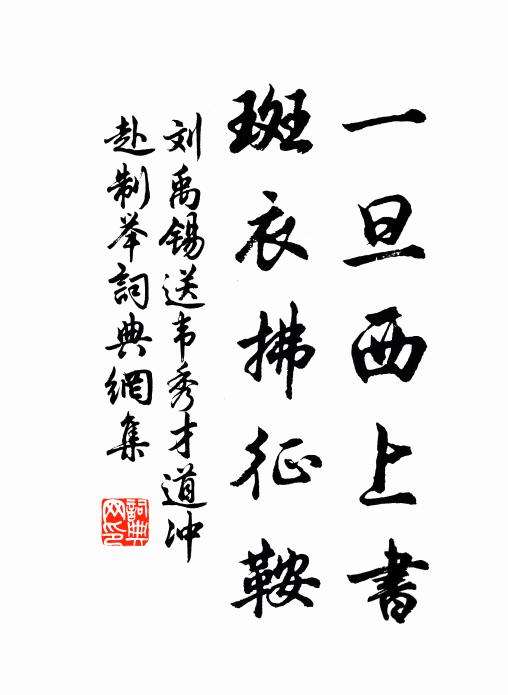 一旦西上書
斑衣拂征鞍
刘禹锡送韦秀才道冲
赴制举詞典網集
詞典網印